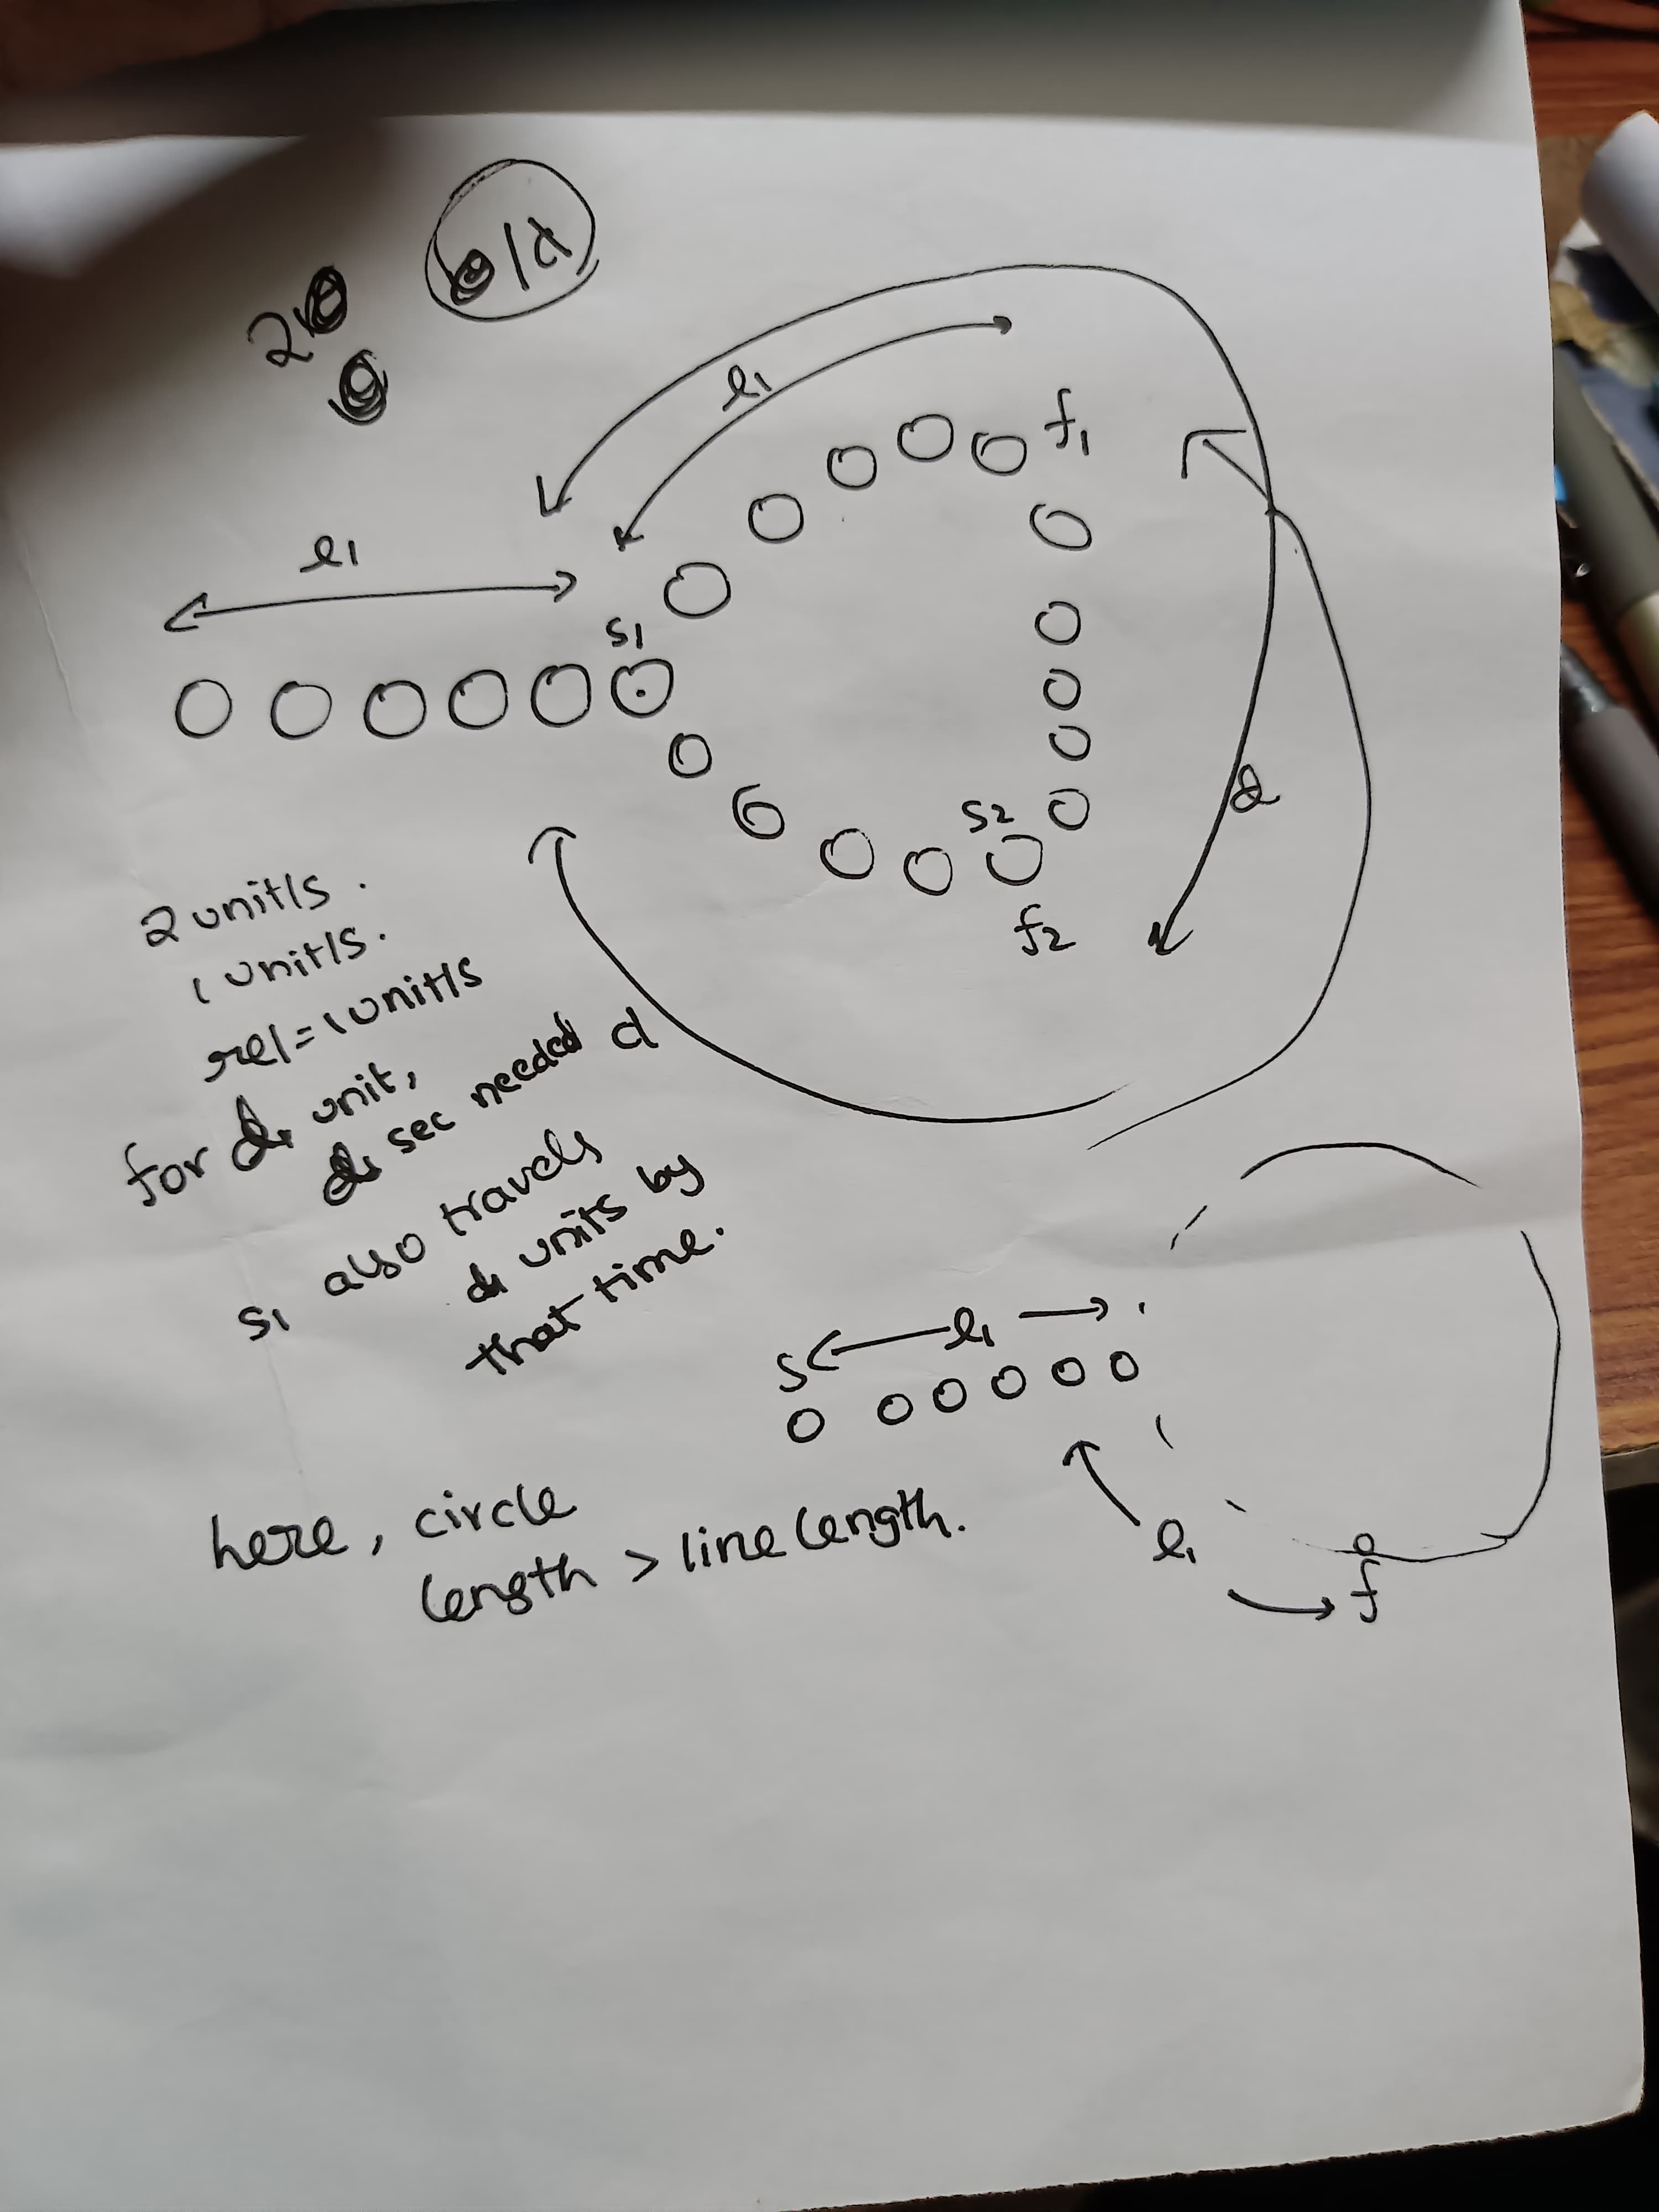 2
/d
l1
l1
f1
s1
s2
f2
d
2 unit/s.
1 unit/s.
rel = 1 unit/s
for d unit,
d sec needed
d
s1 also travels
d units by
that time.
s l1
here, circle
length > line length.
l1
f